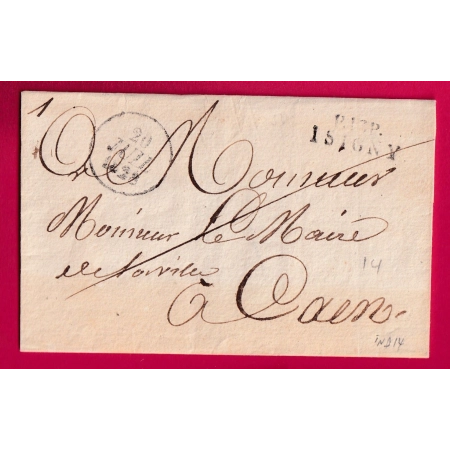 1
20
P.13.P.
ISIGNY
A Monsieur
Monsieur Le Maire
de la ville
à Caen.
14
IND 14